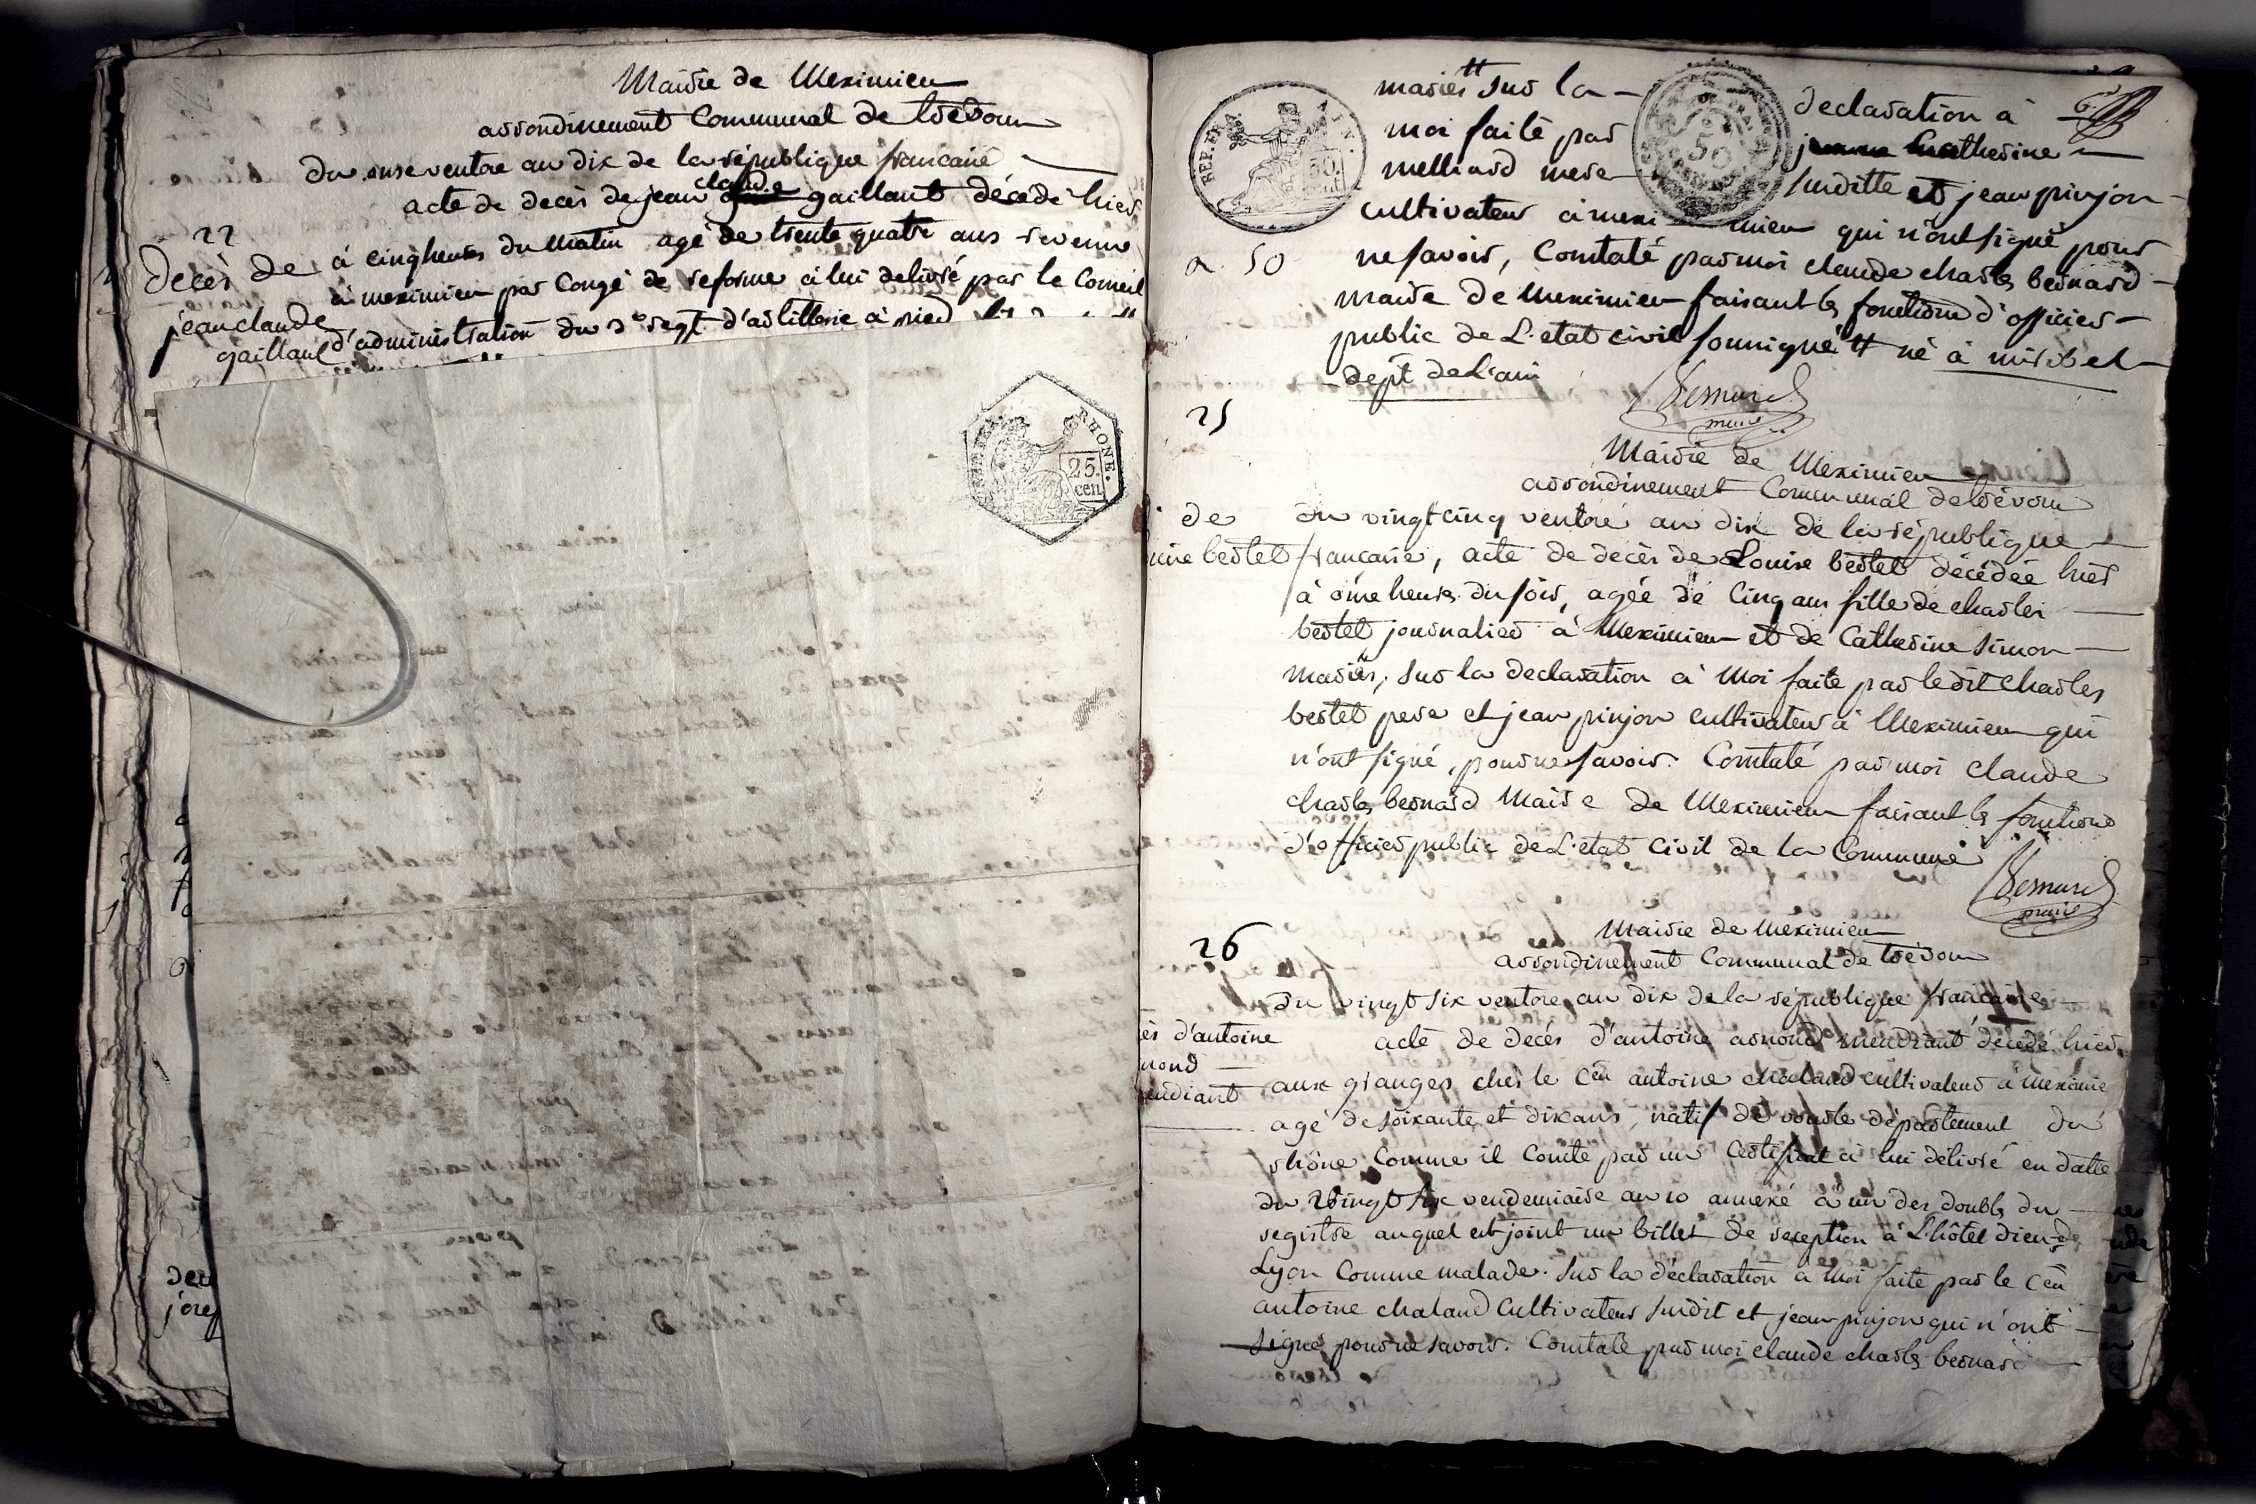 Mairie de Meximieu
arrondinement Communal de trévoux
du onze ventose an dix de la république francaise
acte de decès de jean claude gaillant décédé hier
22
decès de
jean claude
gaillant
à cinq heures du matin agé de trente quatre ans revenu
à meximieu par Congé de reforme à lui delivré par le Conseil
d'administration du 3e regt. d'artillerie à pied
REP. FRA
RHONE.
25.
cen
mariés # sur la declaration à
moi faite par Catherine
melliard mere susditte et jean pinjon
cultivateur à meximieu qui n'ont signé pour
ne savoir, Constaté par moi claude charles bernard
maire de Meximieu faisant les fonctions d'officier
public de L'etat civil soussigné # né à miribel
dept. de L'ain
REP. FRA
50.
50
a. 50
Bernard
maire
25
Mairie de Meximieu
arrondinement Communal de trévoux
de
uise bertet
du vingt cinq ventose an dix de la république
francaise, acte de decès de Louise bertet décédée hier
à onze heures du soir, agée de Cinq ans fille de charles
bertet journalier à Meximieu et de Catherine Simon
mariés, sur la declaration à Moi faite par ledit Charles
bertet pere et jean pinjon cultivateur à Meximieu qui
n'ont signé, pour ne savoir. Constaté par moi claude
charles bernard Maire de Meximieu faisant les fonctions
d'officier public de L'etat Civil de la Commune
Bernard
maire
26
Mairie de Meximieu
arrondinement Communal de trévoux
du vingt six ventose an dix de la république francaise
ès d'antoine
mond
endiant
acte de decès d'antoine armond mendiant décédé hier
aux granges chés le Cen antoine chaland cultivateur à Meximie
agé de soixante et dix ans, natif de vourle département du
rhône Comme il Conste par un Certificat à lui délivré en datte
du vingt six vendemiaire an 10 annexé à un des doubles du
registre auquel est joint un billet de reception à L'hôtel dieu de
Lyon Comme malade. sur la déclaration à Moi faite par le Cen
antoine chaland Cultivateur susdit et jean pinjon qui n'ont
signé pour ne savoir. Constaté par moi claude charles bernard